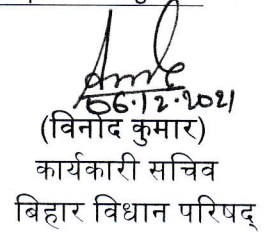 06.12.2021
(विनोद कुमार)
कार्यकारी सचिव
बिहार विधान परिषद्